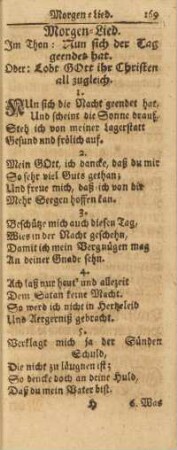 Morgen-Lied. 169
Morgen-Lied.
Im Thon: Nun sich der Tag
geendet hat.
Oder: Lobt GOtt ihr Christen
all zugleich.
1.
NUn sich die Nacht geendet hat,
Und scheint die Sonne drauß,
Steh ich von meiner Lagerstatt
Gesund und frölich auf.
2.
Mein GOtt, ich dancke, daß du mir
So sehr viel Guts gethan;
Und freue mich, daß ich von dir
Mehr Seegen hoffen kan.
3.
Beschütze mich auch diesen Tag,
Wies in der Nacht geschehn,
Damit ich mein Vergnügen mag
An deiner Gnade sehn.
4.
Ach laß nur heut' und allezeit
Dem Satan keine Macht.
So werd ich nicht in Hertzeleid
Und Aergerniß gebracht.
5.
Verklagt mich ja der Sünden
Schuld,
Die nicht zu läugnen ist;
So dencke doch an deine Huld,
Daß du mein Vater bist.
H 6. Was